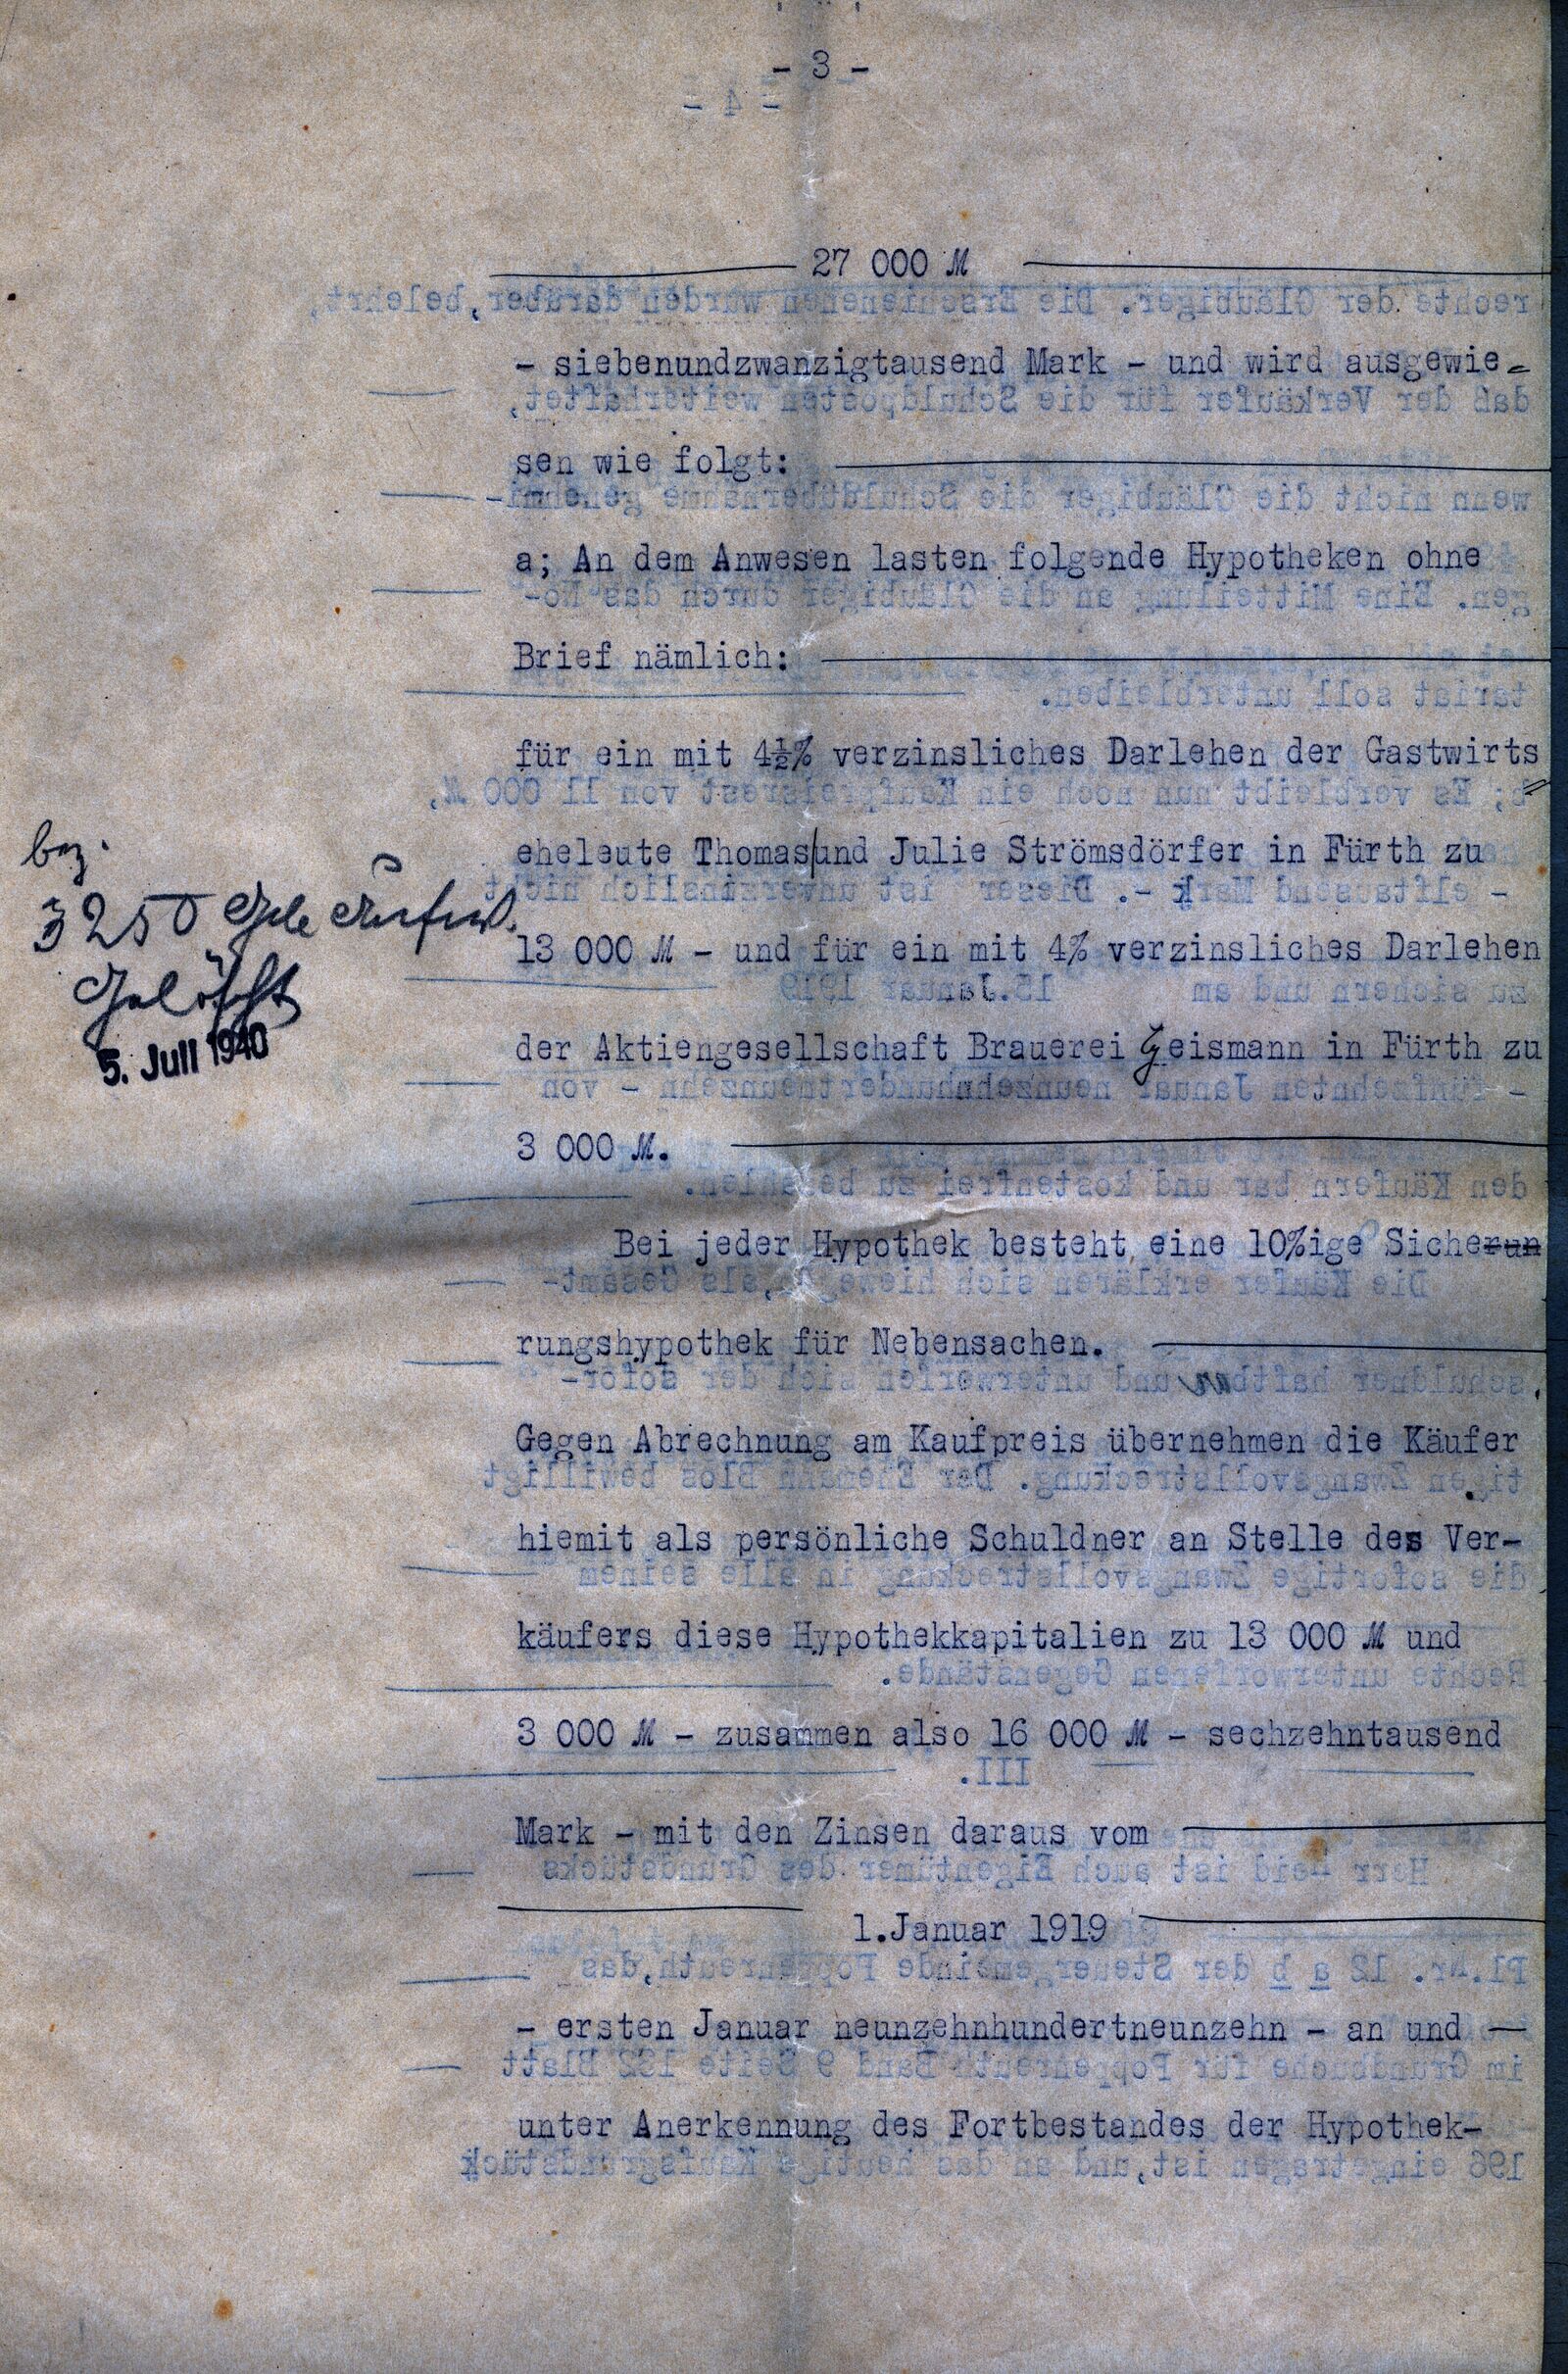 - 3 -
27 000 M
- siebenundzwanzigtausend Mark - und wird ausgewie-
sen wie folgt:
a; An dem Anwesen lasten folgende Hypotheken ohne
Brief nämlich:
für ein mit 4½% verzinsliches Darlehen der Gastwirts
eheleute Thomas und Julie Strömsdörfer in Fürth zu
13 000 M - und für ein mit 4% verzinsliches Darlehen
der Aktiengesellschaft Brauerei Geismann in Fürth zu
3 000 M.
Bei jeder Hypothek besteht eine 10%ige Sicherun
rungshypothek für Nebensachen.
Gegen Abrechnung am Kaufpreis übernehmen die Käufer
hiemit als persönliche Schuldner an Stelle des Ver-
käufers diese Hypothekkapitalien zu 13 000 M und
3 000 M - zusammen also 16 000 M - sechzehntausend
Mark - mit den Zinsen daraus vom
1.Januar 1919
- ersten Januar neunzehnhundertneunzehn - an und —
unter Anerkennung des Fortbestandes der Hypothek-
bez.
3250
Gelöscht
5. Juli 1940